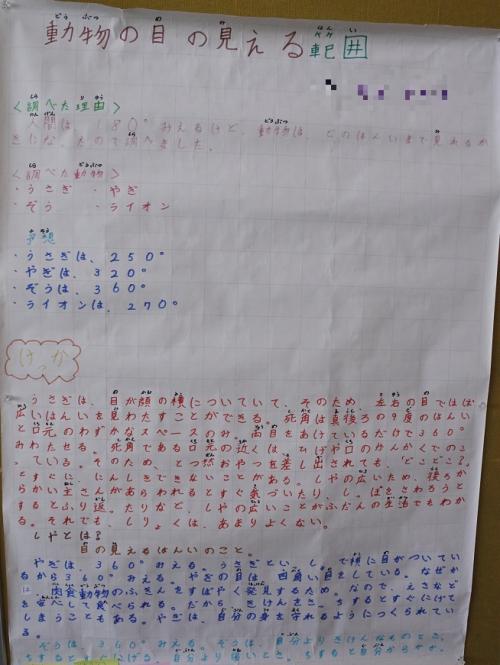 動物の目の見える範囲
<調べた理由>
人間は、180°みえるけど、動物は、どのはんいまで見れるか
きになったので調べました。
<調べた動物>
・うさぎ ・やぎ
・ぞう ・ライオン
予想
・うさぎは、250°
・やぎは、320°
・ぞうは、360°
・ライオンは、270°
けっか
うさぎは、目が顔の横についていて、そのため、左右の目でほぼ
広いはんいを見わたすことができる。死角は真後ろの9度のはんい
と口元のわずかなスペースのみ。両目をあけているだけで360°
みわたせる。死角である口元の近くは、ひげや口のかんかくでおこ
なっている。そのため、とつ然おやつを差し出されても、どこ?
とすぐに、にんしきできないことがある。しやの広いため、後ろか
らかい主さんがあらわれるとすぐ気づいたり、しっぽをさわろうと
するとふり返ったりなど、しやの広いことがふだんの生活でもわか
る。それでも、しりょくは、あまりよくない。
しやとは?
目の見えるはんいのこと。
やぎは、360°みえる。うさぎといっしょで横に目がついてい
るから360°みえる。やぎの目は四角い目をしている。なぜか
は、肉食動物のふきんをすばやく発見するため。なので、えさなど
を安心して食べられる。だから、きけんさっちするとすぐににげて
しまうこともある。やぎは、自分の身を守れるようにつくられてい
る。
ぞうは、360°みえる。ぞうは、自分よりきけんなものとさっ